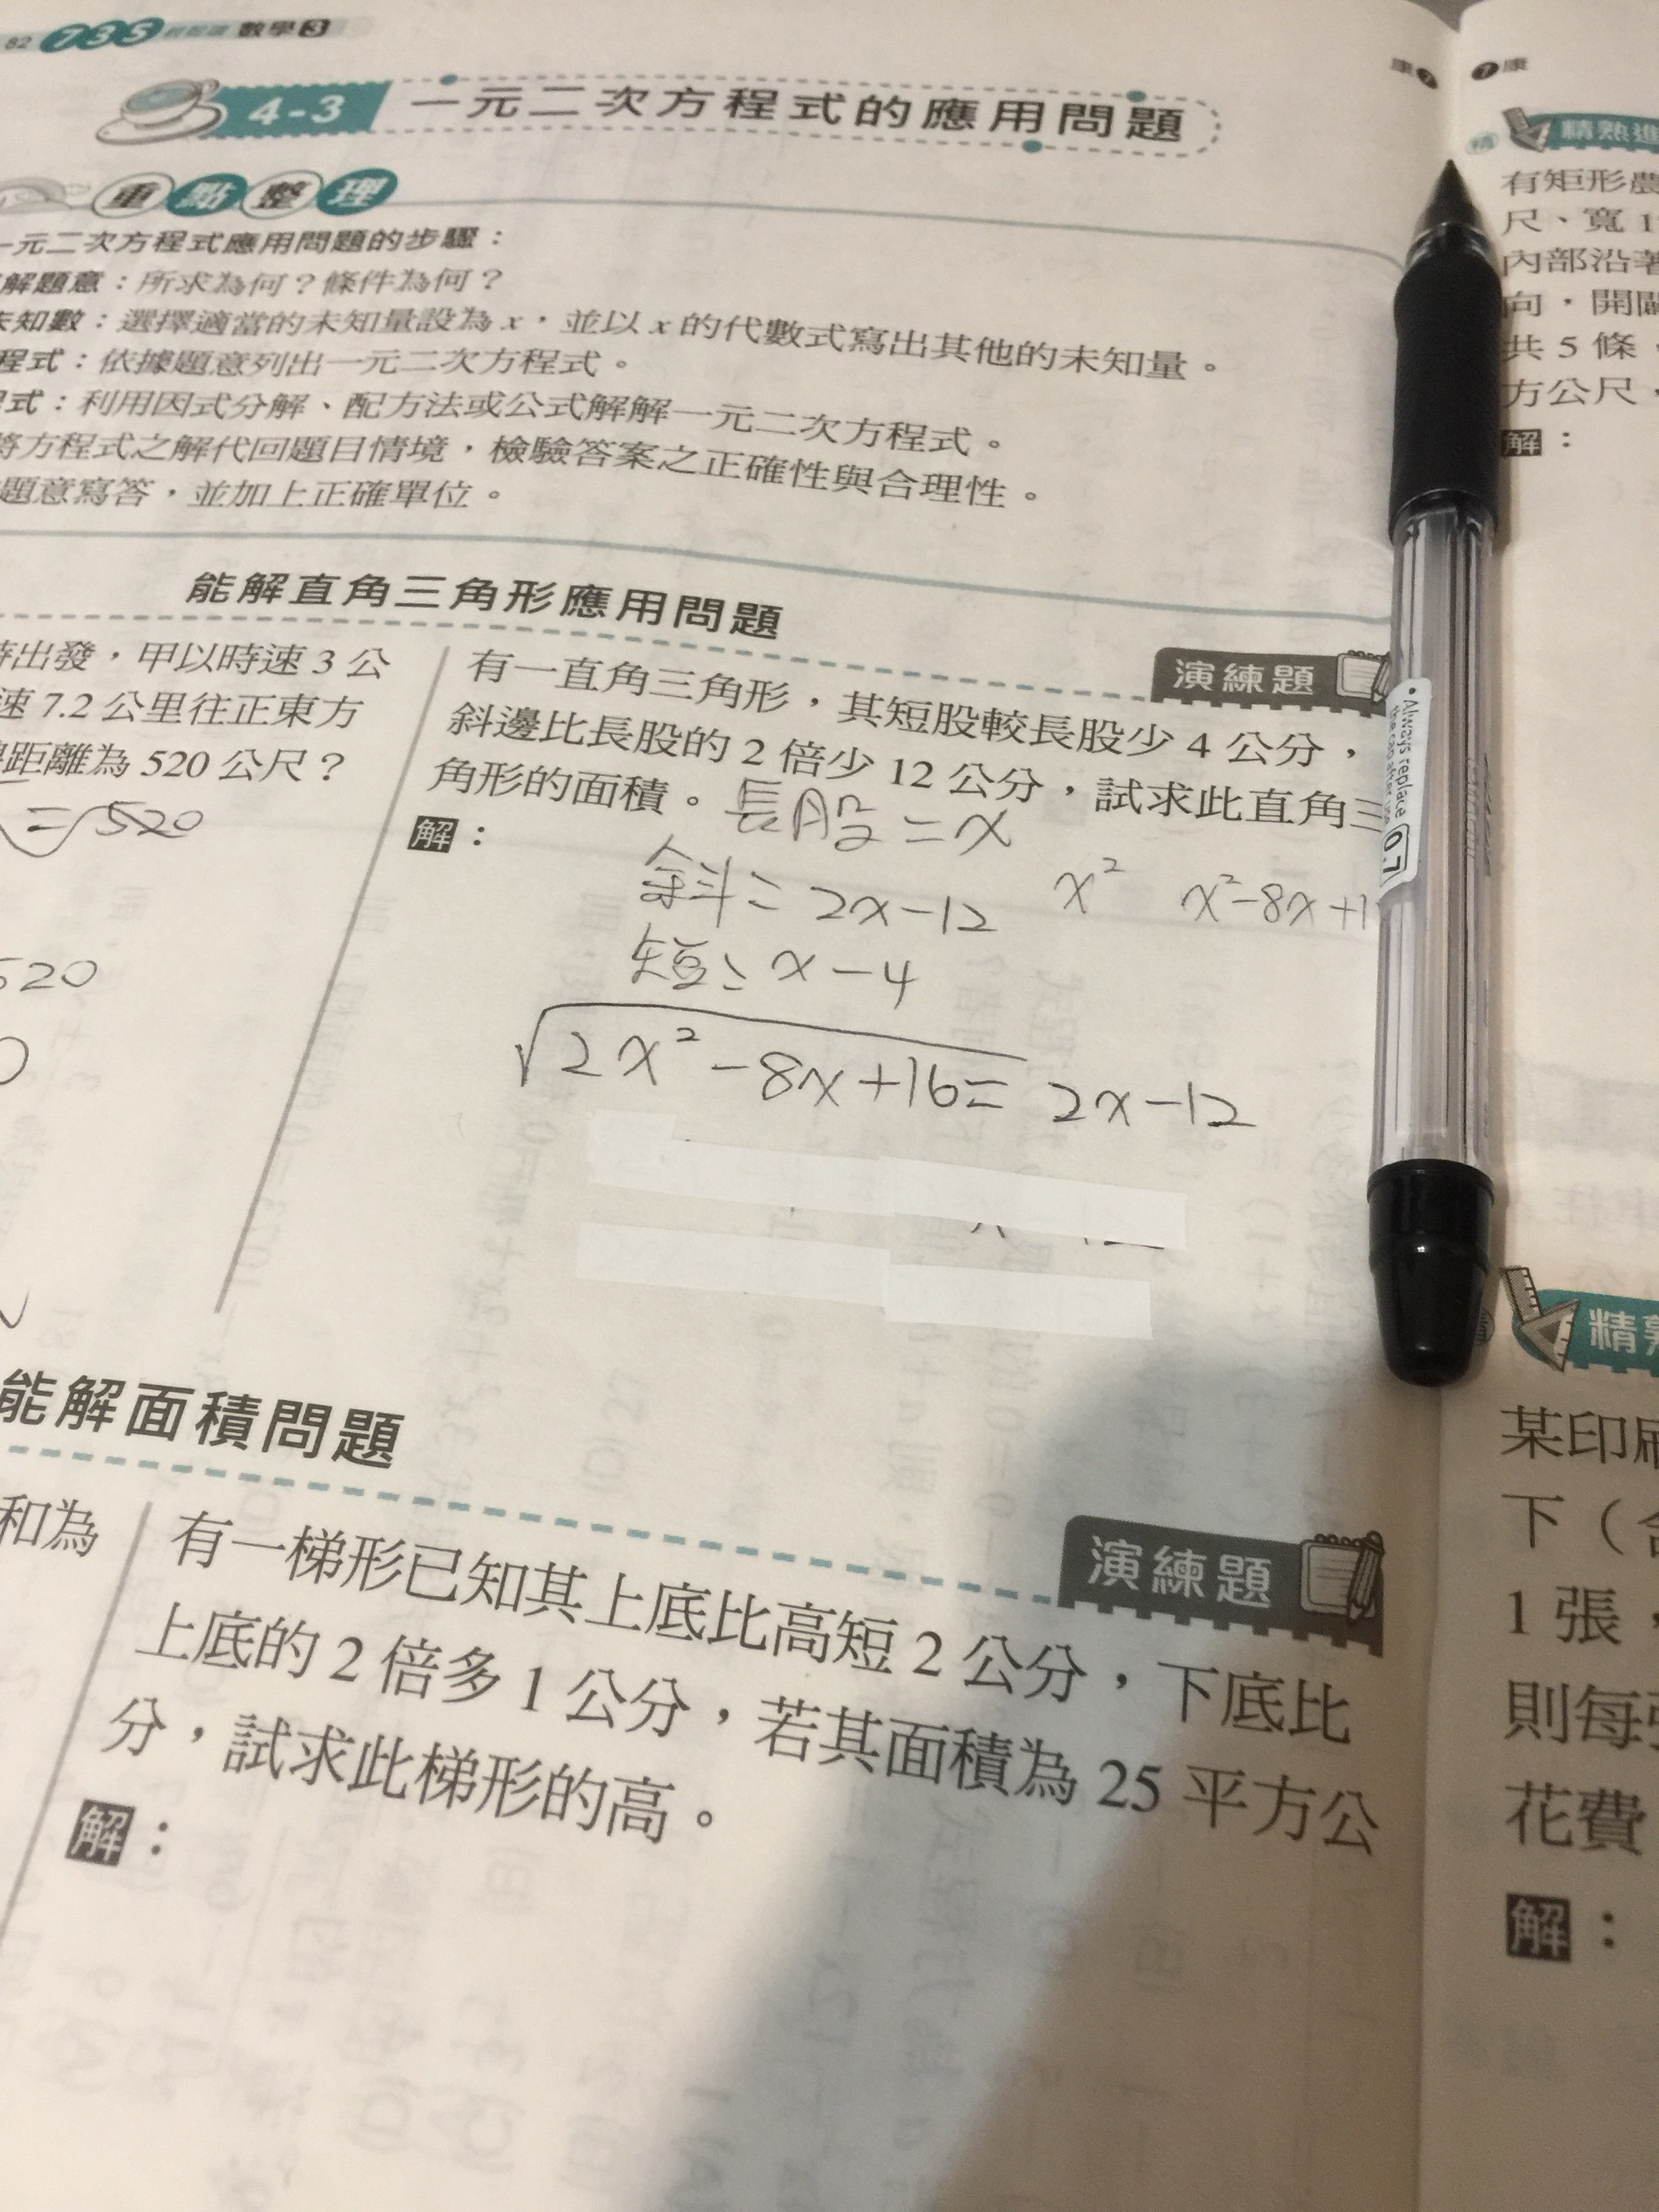 82 735 輕鬆讀 數學3
4-3 一元二次方程式的應用問題
重點整理
一元二次方程式應用問題的步驟：
解題意：所求為何？條件為何？
未知數：選擇適當的未知量設為 x，並以 x 的代數式寫出其他的未知量。
程式：依據題意列出一元二次方程式。
式：利用因式分解、配方法或公式解解一元二次方程式。
將方程式之解代回題目情境，檢驗答案之正確性與合理性。
題意寫答，並加上正確單位。
能解直角三角形應用問題
時出發，甲以時速 3 公
速 7.2 公里往正東方
距離為 520 公尺？
=520
520
演練題
有一直角三角形，其短股較長股少 4 公分，
斜邊比長股的 2 倍少 12 公分，試求此直角三
角形的面積。
解：
長股=x
斜=2x-12
x² x²-8x+1
短=x-4
√2x²-8x+16=2x-12
能解面積問題
和為
演練題
有一梯形已知其上底比高短 2 公分，下底比
上底的 2 倍多 1 公分，若其面積為 25 平方公
分，試求此梯形的高。
解：
康7
7康
精熟進
有矩形農
尺、寬 1
內部沿著
向，開闢
共 5 條，
方公尺，
解：
• Always replace
the cap after use
0.7
精熟
某印刷
下（含
1 張，
則每張
花費
解：